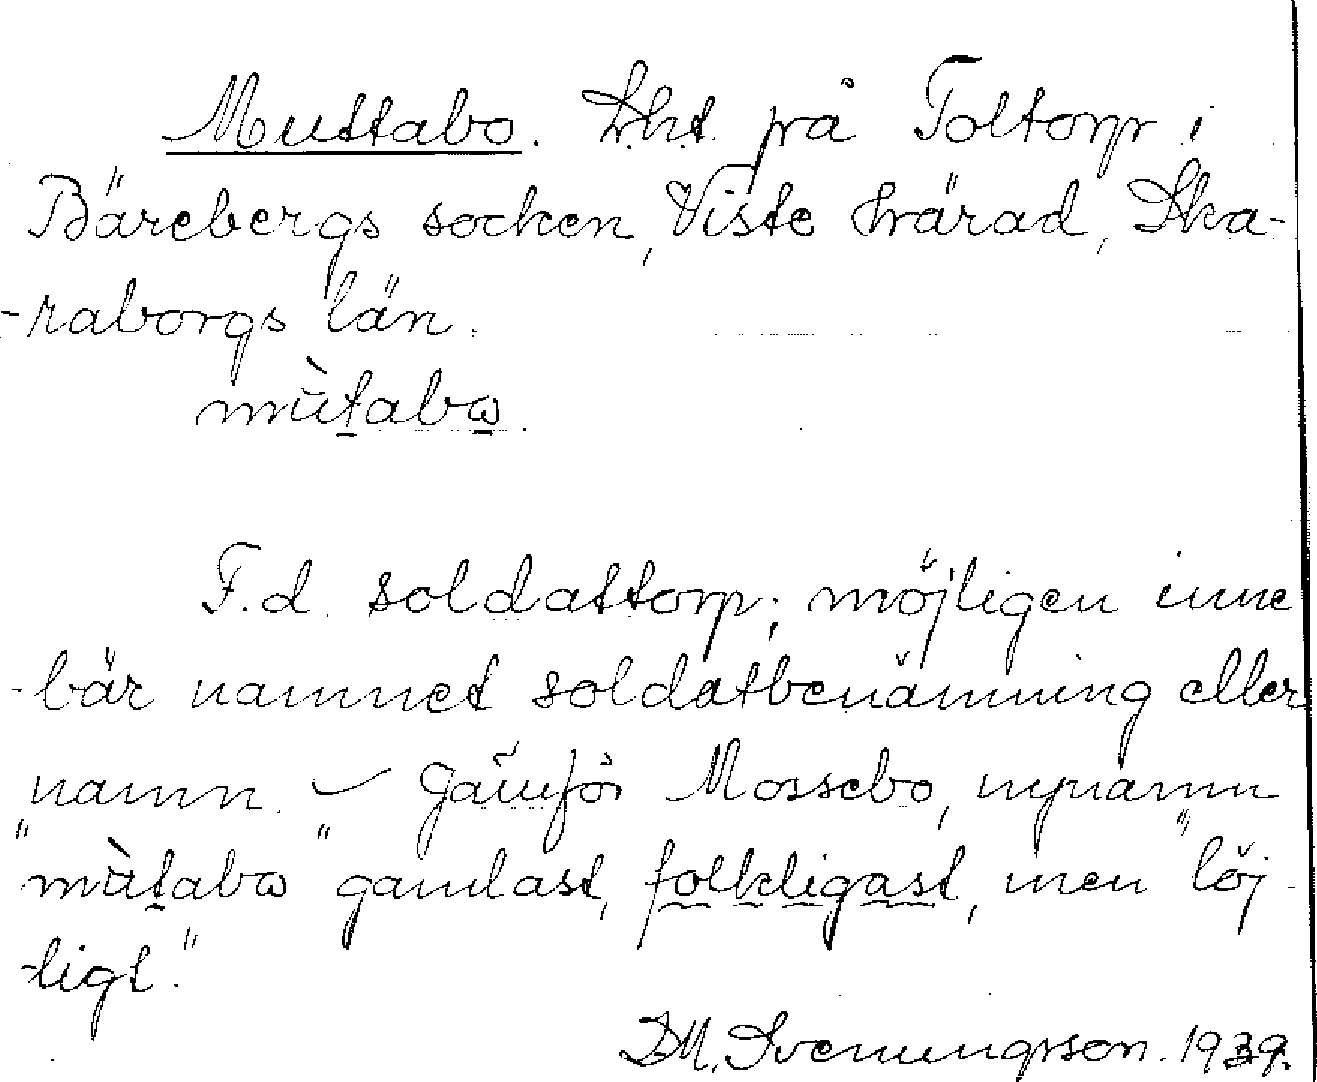 Muttabo. Lht. på Toltorp i
Bärebergs socken, Viste härad, Ska-
-raborgs län.
mùtabω.
F.d. soldattorp; möjligen inne
-bär namnet soldatbenämning eller
namn. – Jämför Mossebo, nynamn
"mùtabω" gamlast, folkligast, men "löj
-ligt."
D.M. Svenningsson. 1939.